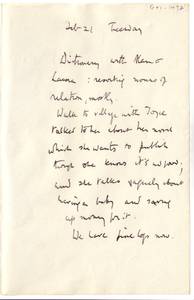 Feb-21 Tuesday
Dictionary with Remo
: resorting nouns of
relation, mostly.
Walk to village with Joyce
talked to her about her novel
which she wants to publish
though she knows it's
and she talks vaguely about
having a baby and saving
up money for it.
We have fine logs now.